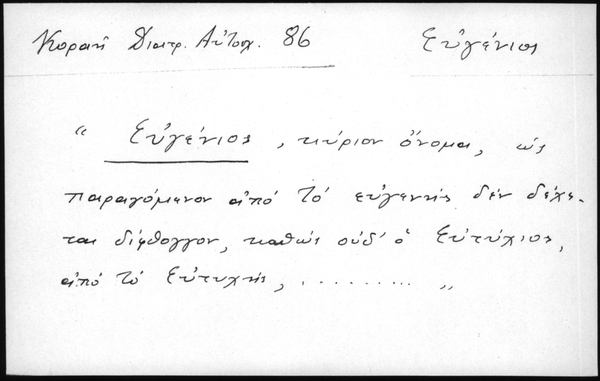 Κοραῆ Διατρ. Αὐτοσχ. 86 Εὐγένιος
“ Εὐγένιος, κύριον ὄνομα, ὡς
παραγόμενον ἀπό τό εὐγενής δέν δέχε-
ται δίφθογγον, καθώς οὐδ' ὁ Εὐτύχιος,
ἀπό τό Εὐτυχής, .......... „